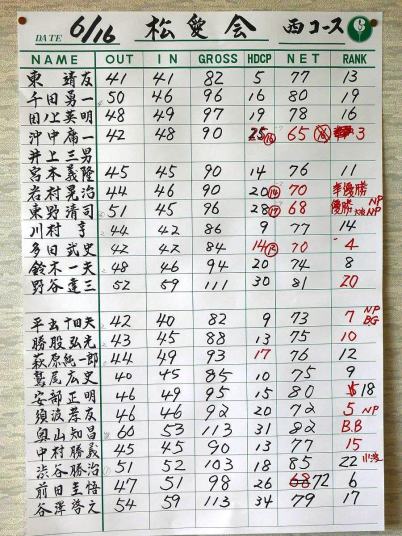 DATE 6/16 松愛会 西コース
NAME OUT IN GROSS HDCP NET RANK
東 靖友 41 41 82 5 77 13
千田勇一 50 46 96 16 80 19
田ノ上英明 48 49 97 19 78 16
沖中庸一 42 48 90 25 65 3
井上三男
宮本義隆 45 45 90 14 76 11
岩村晃治 44 46 90 20 70 準優勝
東野清司 51 45 96 28 68 優勝 NP NP
川村 亨 44 42 86 9 77 14
多田武史 42 42 84 14 70 4
鈴木一夫 48 46 94 20 74 8
野谷達三 52 59 111 30 81 20
平吉十四夫 42 40 82 9 73 7 NP BG
勝股弘光 43 45 88 13 75 10
萩原純一郎 44 49 93 17 76 12
鷲尾広史 40 45 85 10 75 9
安部正明 46 49 95 15 80 18
須波孝友 46 46 92 20 72 5 NP
奥山知昌 60 53 113 31 82 B.B
中村勝義 45 45 90 13 77 15
渋谷勝治 51 52 103 18 85 22
前田圭悟 47 51 98 26 68 72 6
谷澤啓之 54 59 113 34 79 17